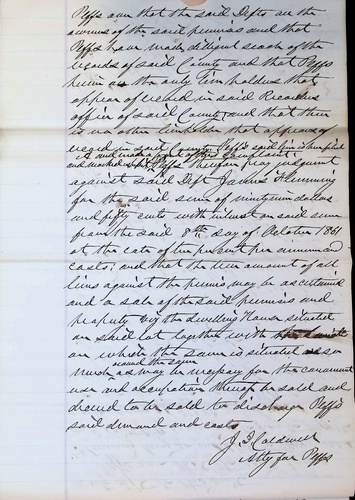 Plffs aver that the said Defts are the
owners of the said premises and that
Plffs have made diligent search of the
records of said County and that Plffs
herein are the only lien holders that
appear of record in said Recorders
office of said County and that there
is no other lienholder that appears of
record in said County Plffs said lien is herewith filed
and made a part of this Complaint
and marked Plffs therefore pray judgment
against said Deft James Flemming
for the said sum of ninety nine dollars
and fifty cents with interest on said sum
from the said 8th day of October 1861
at the rate of ten per cent per annum and
costs; and that the true amount of all
liens against the premises may be ascertained
and a sale of the said premises and
property viz the dwelling House situated
on said lot together with
on which the same is situated or so
around the same
much as may be necessary for the convenient
use and occupation thereof be sold and
decreed to be sold to discharge Plffs
said demand and costs
J. F. Caldwell
Atty for Plffs